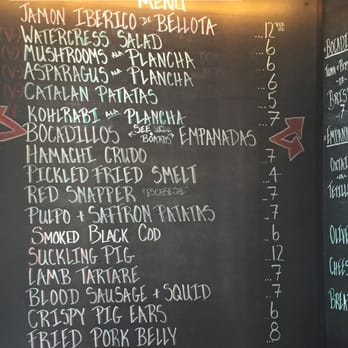 MENU
JAMON IBERICO DE BELLOTA ...12
(V) WATERCRESS SALAD ...6
(V) MUSHROOMS A LA PLANCHA ...6
(V) ASPARAGUS A LA PLANCHA ...6
(V) CATALAN PATATAS ...5
KOHLRABI A LA PLANCHA ...7
BOCADILLOS SEE BOARDS EMPANADAS
HAMACHI CRUDO ...7
PICKLED FRIED SMELT ...4
RED SNAPPER "ESCABECHE" ...7
PULPO + SAFFRON PATATAS ...7
SMOKED BLACK COD ...6
SUCKLING PIG ...12
LAMB TARTARE ...7
BLOOD SAUSAGE + SQUID ...7
CRISPY PIG EARS ...6
FRIED PORK BELLY ...8
BOCADI
TUNA
BRIS
7
EMPANA
OXTAI
TETILL
OLIVE
CHEES
BREA